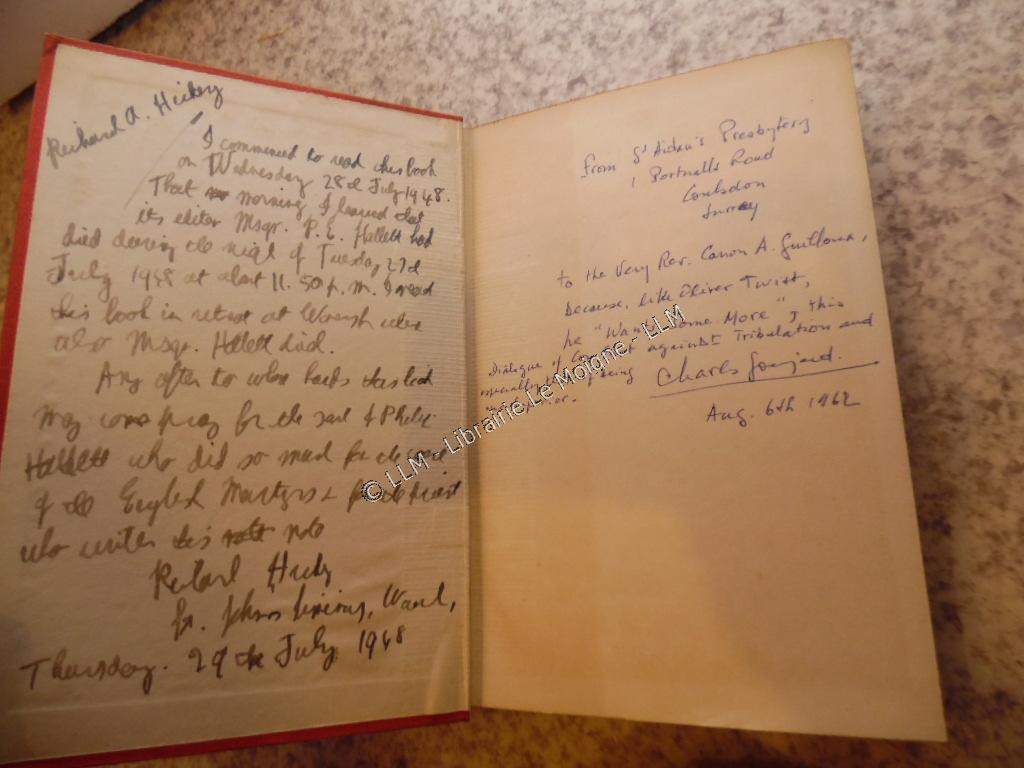 Richard A. Hickey
I commenced to read this book
on Wednesday 28th July 1948.
That morning I learned that
its editor Msgr. P. E. Hallett had
died during the night of Tuesday 27th
July 1948 at about 11.50 p.m. I read
this book in retreat at Wonersh where
also Msgr. Hallett died.
Any after to whose hands this book
may come pray for the soul of Philip
Hallett who did so much for the cause
of the English Martyrs & for the priest
who writes this note
Richard Hickey
St. John's Seminary,
Thursday. 29th July 1948
From St Aidan's Presbytery
1 Portnalls Road
Coulsdon
Surrey
to the Very Rev. Canon A.
because, like Oliver Twist,
he "Wants Some More", this
Dialogue of Comfort against Tribulation and
especially
Charles
Aug. 6th 1962
© LLM - Librairie Le Moigne - LLM